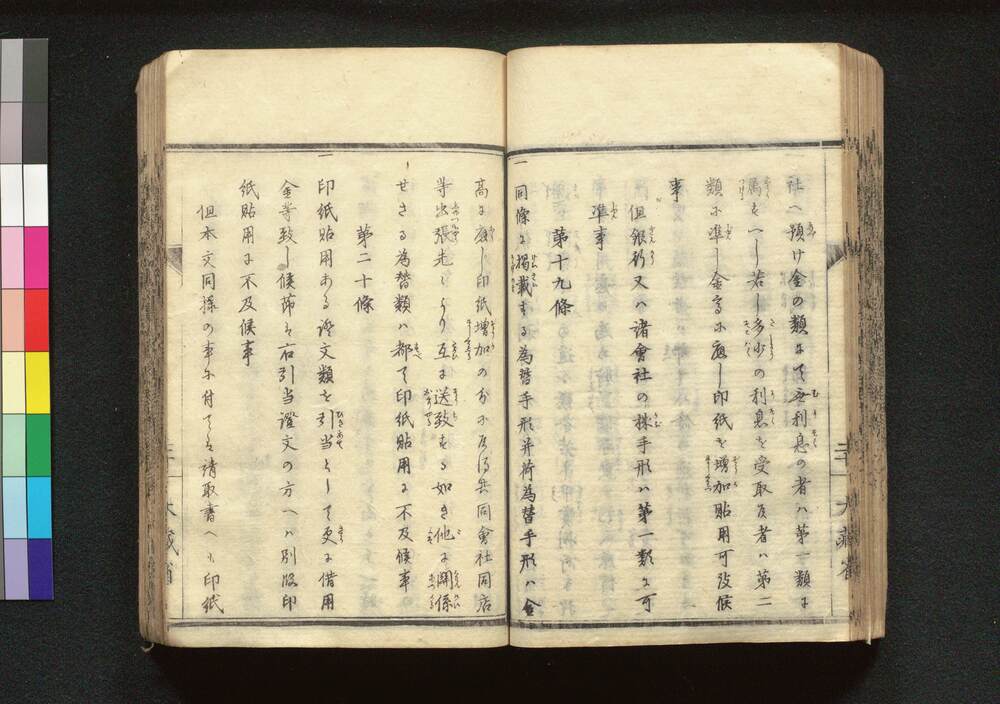 社へ預け金の類にて無利息の者ハ第一類に
属すへし若し多少の利息を受取候者ハ第二
類に準し金高に應し印紙を増加貼用可致候
事
但銀行又ハ諸會社の株手形ハ第一類に可
準事
第十九條
一同條に掲載する為替手形并荷為替手形ハ金
高に應し印紙増加の分に候得共同會社同店
等出張先により互に送致する如き他に関係
せさる為替類ハ都て印紙貼用に不及候事
第二十條
一印紙貼用ある證文類を引当として更に借用
金等致し候節は右引当證文の方へハ別段印
紙貼用に不及候事
但本文同様の事に付ても請取書へハ印紙
大蔵省
大藏省